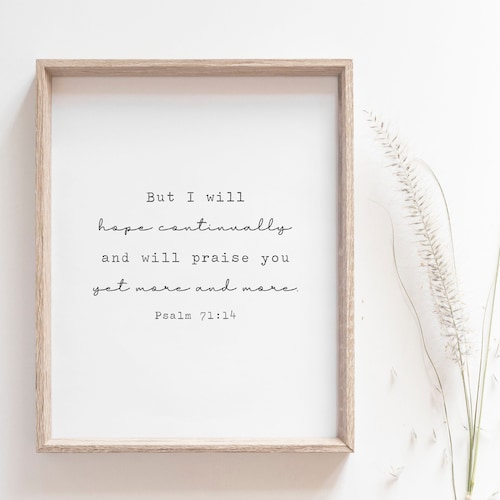 But I will
hope continually
and will praise you
yet more and more.
Psalm 71:14